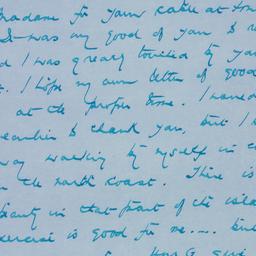 for your cable at
It was very good of you to
I was greatly touched by your
I hope my own letter of good
at the proper time. I wanted
to thank you, but I
way walking by myself in
the north coast. There is
beauty in that part of the isla
exercise is good for me....